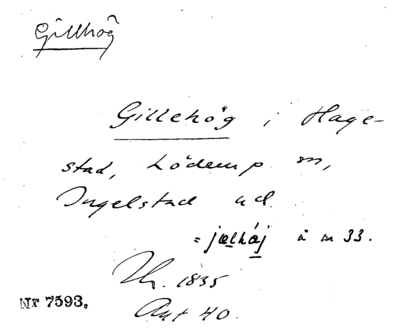 Gillhög
Gillehög i Hage-
stad, Löderup sn,
Ingelstad hd.
= jælhåj å n 33.
1835
Ant 40.
Nr 7593.